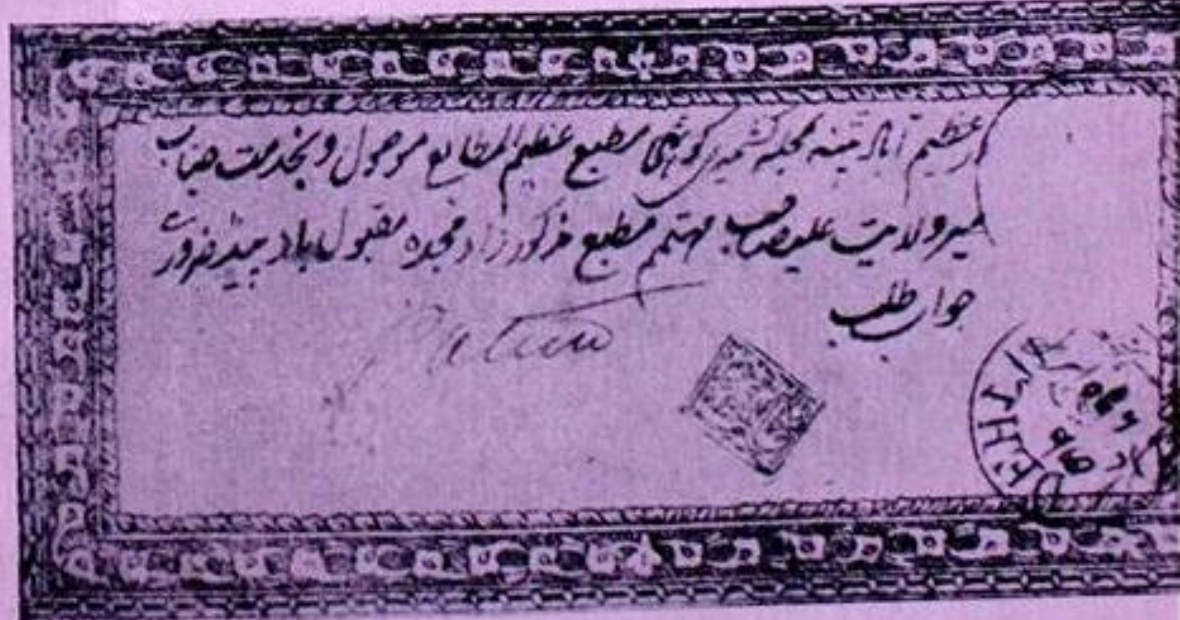 در عظیم آباد پٹنہ محلہ کشمیری کوٹھی مطبع عظیم المطابع موصول و بخدمت جناب
میر ولایت علیصاحب مہتمم مطبع مذکور زاد مجدہ مقبول باد بیڈ ضروری
جواب طلب
Patna
DEHLI